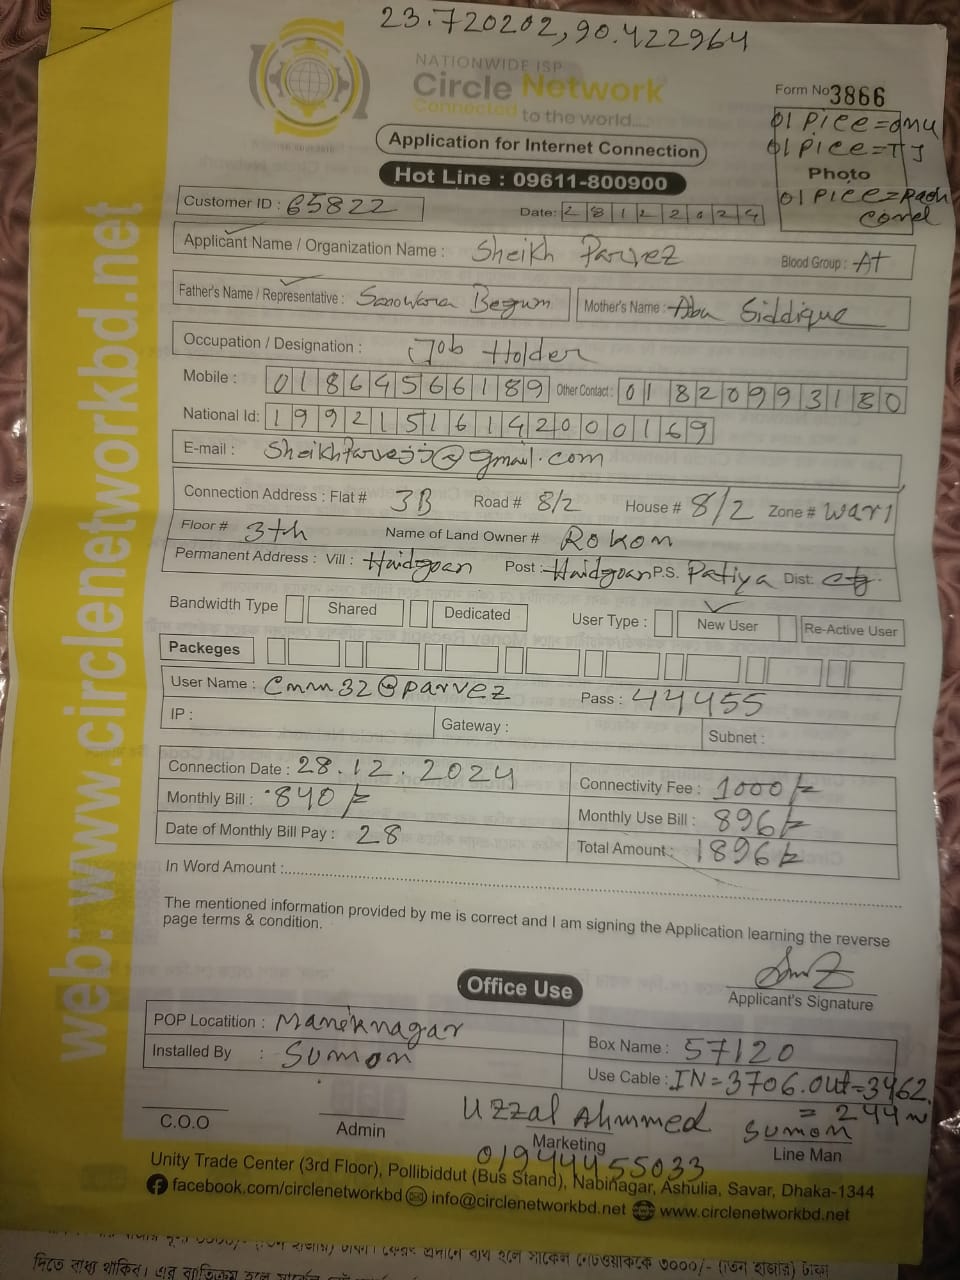 23.720202,90.422964
NATIONWIDE ISP
Circle Network
Connected to the world....
Form No 3866
01 Piece=onu
01 Piece=TJ
Photo
01 Piece=Pach
cord
Application for Internet Connection
Hot Line : 09611-800900
Customer ID : 65822
Date: 28122024
Applicant Name / Organization Name : Sheikh Parvez Blood Group : A+
Father's Name / Representative : Sanowara Begum Mother's Name : Abu Siddique
Occupation / Designation : Job Holder
Mobile : 01864566189 Other Contact : 01820993180
National Id: 19921516142000169
E-mail : @gmail.com
Connection Address : Flat # 3B Road # 8/2 House # 8/2 Zone # wari
Floor # 3th Name of Land Owner # Rokon
Permanent Address : Vill : Haidgoan Post : Haidgoan P.S. Patiya Dist: ctg.
Bandwidth Type Shared Dedicated User Type : New User Re-Active User
Packeges
User Name : Cmm32@parvez Pass : 44455
IP : Gateway : Subnet :
Connection Date : 28.12.2024 Connectivity Fee : 1000/-
Monthly Bill : 840/- Monthly Use Bill : 896/-
Date of Monthly Bill Pay : 28 Total Amount : 1896/-
In Word Amount :
The mentioned information provided by me is correct and I am signing the Application learning the reverse
page terms & condition.
Applicant's Signature
Office Use
POP Locatition : Maneknagar Box Name : 57120
Installed By : Sumon Use Cable : IN=3706.out=3462.
= 244 m
C.O.O Admin Uzzal Ahmmed Sumon
Marketing Line Man
01944455033
Unity Trade Center (3rd Floor), Pollibiddut (Bus Stand), Nabinagar, Ashulia, Savar, Dhaka-1344
facebook.com/circlenetworkbd info@circlenetworkbd.net www.circlenetworkbd.net
web: www.circlenetworkbd.net
দিতে বাধ্য থাকিব। এর ব্যতিক্রম হলে সার্কেল নেটওয়ার্ককে ৩০০০/- (তিন হাজার) টাকা